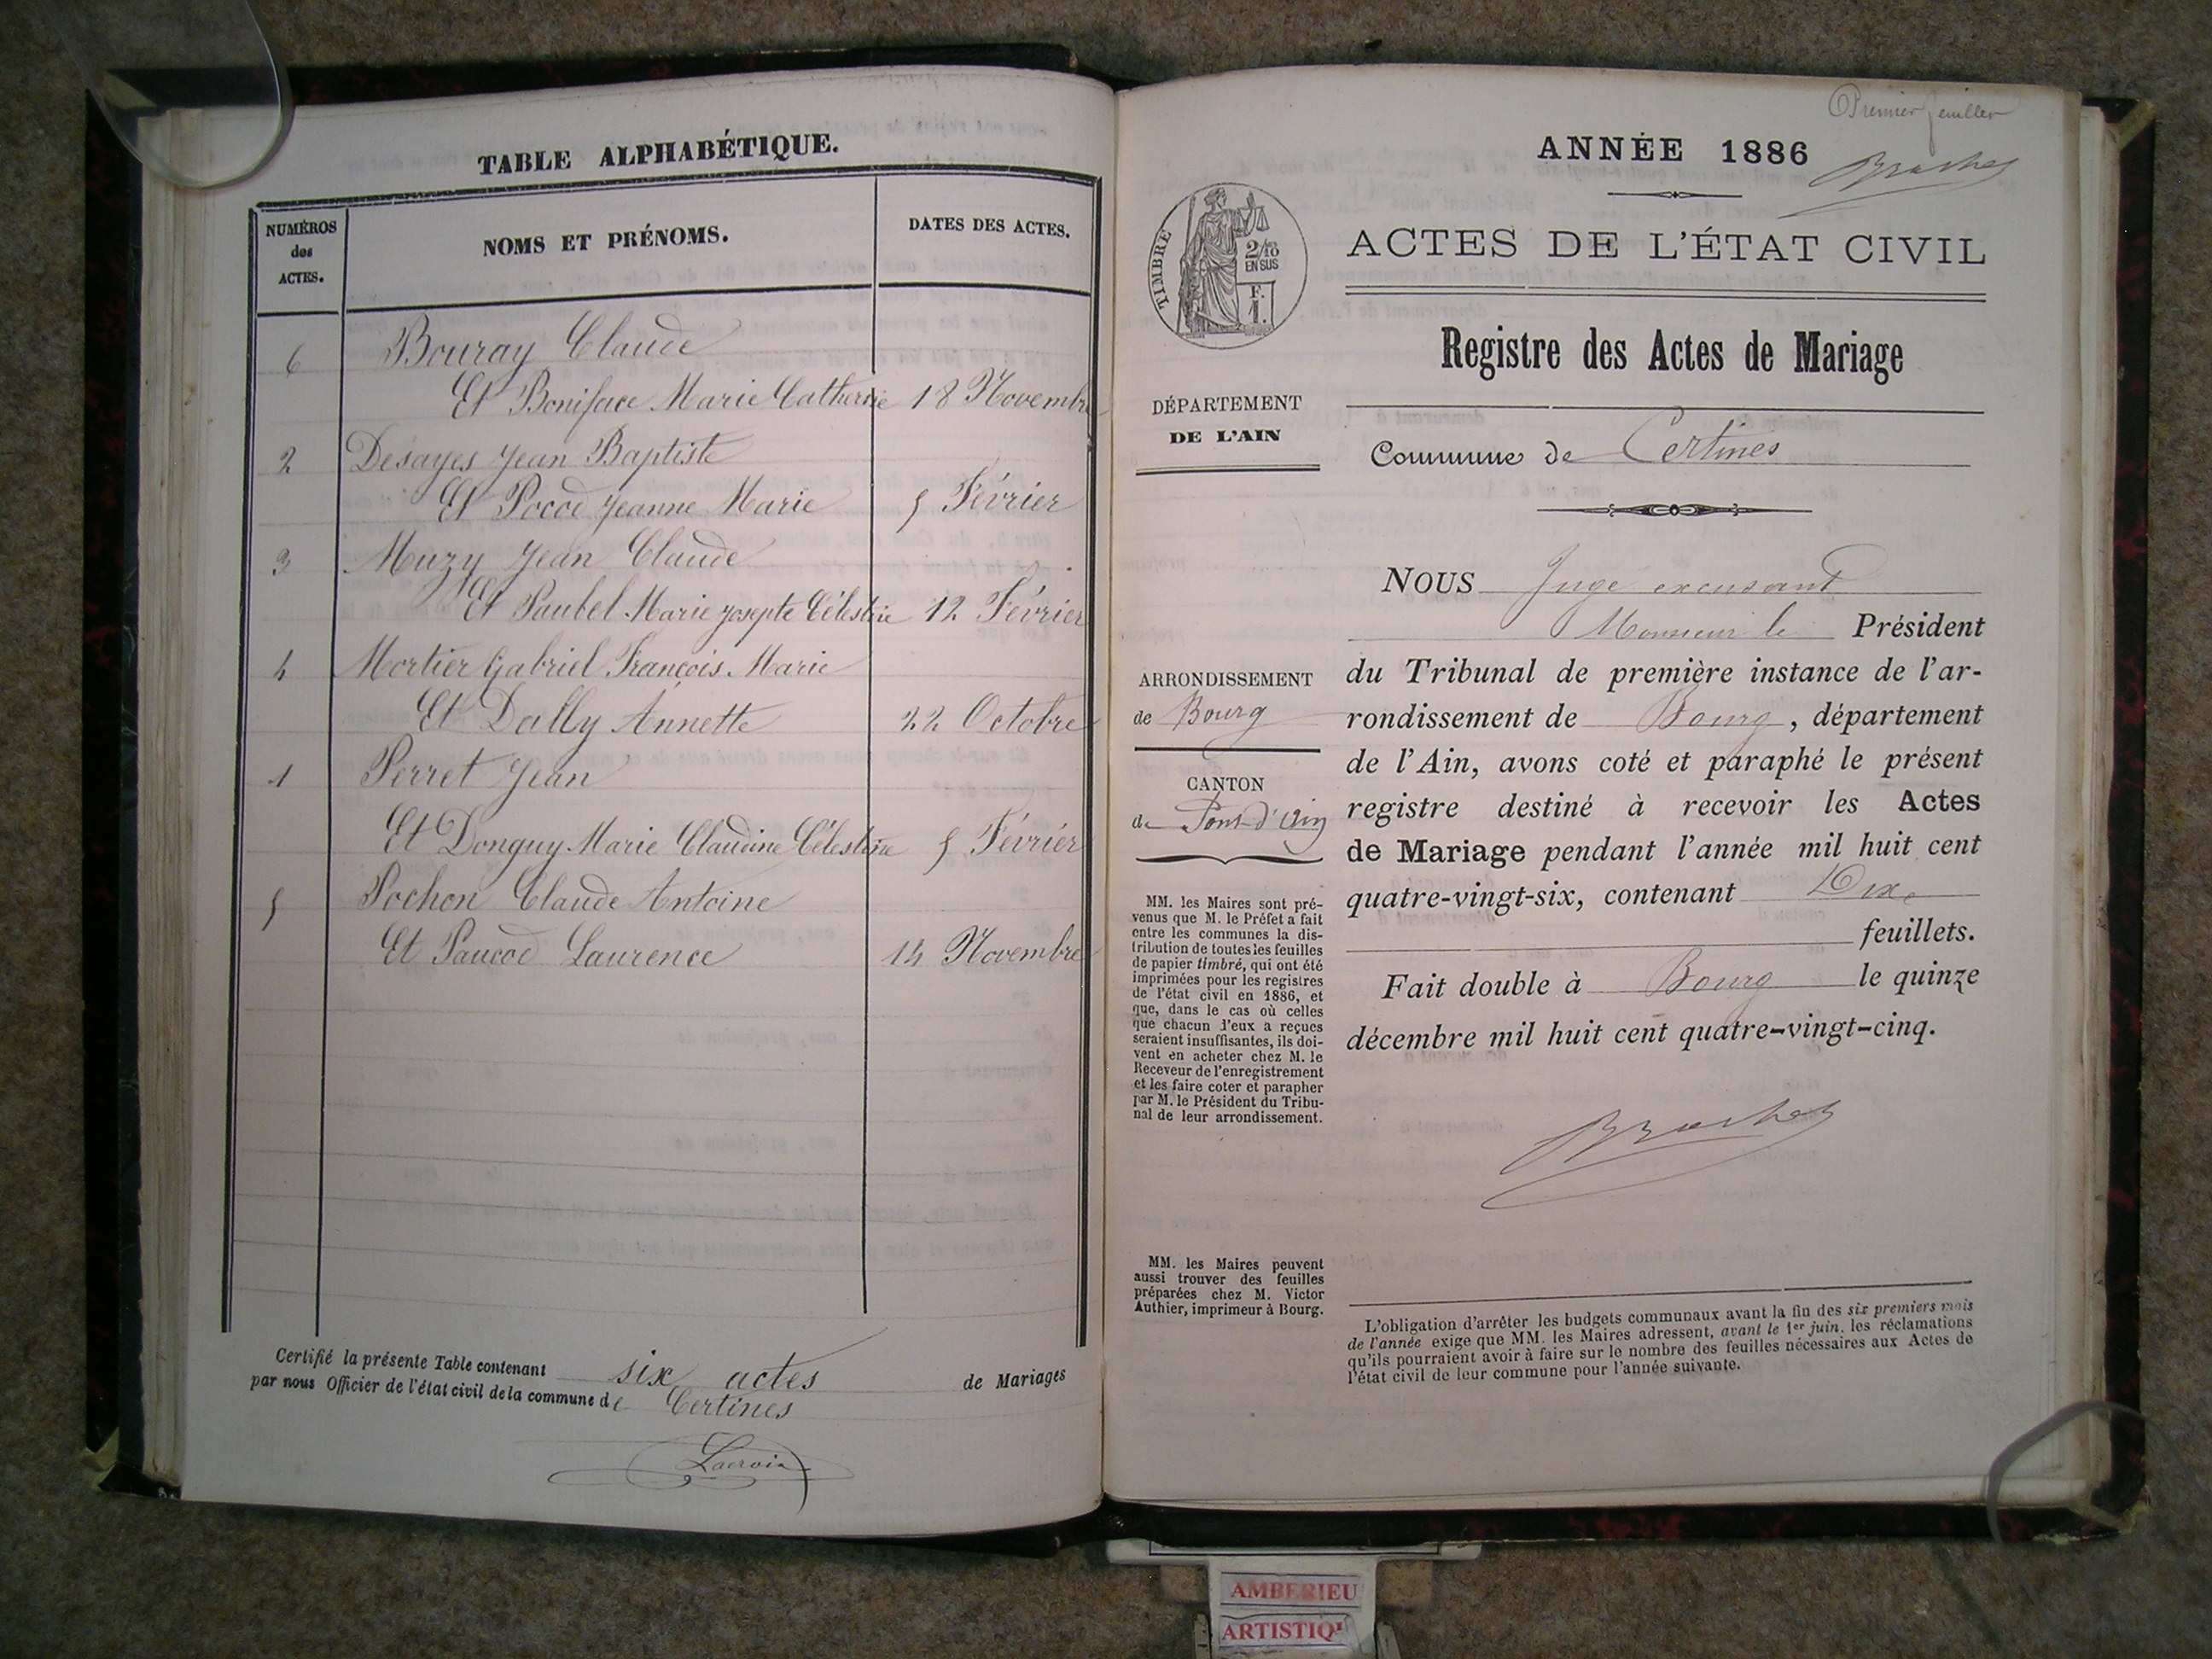 TABLE ALPHABÉTIQUE.
NUMÉROS
des
ACTES.
NOMS ET PRÉNOMS.
DATES DES ACTES.
6 Bouray Claude
Et Boniface Marie Catherine 18 Novembre
2 Desayes Jean Baptiste
Et Pocod Jeanne Marie 5 Février
3 Muzy Jean Claude
Et Paubel Marie Josepte Célestine 12 Février
4 Mortier Gabriel François Marie
Et Dally Annette 22 Octobre
1 Perret Jean
Et Donguy Marie Claudine Célestine 5 Février
5 Pochon Claude Antoine
Et Paucod Laurence 14 Novembre
Certifié la présente Table contenant six actes de Mariages
par nous Officier de l'état civil de la commune de Certines
Lacroix
Premier feuillet
ANNÉE 1886
Brachet
TIMBRE
2/10
EN SUS
F.
1.
ACTES DE L'ÉTAT CIVIL
Registre des Actes de Mariage
DÉPARTEMENT
DE L'AIN
Commune de Certines
ARRONDISSEMENT
de Bourg
CANTON
de Pont-d'Ain
MM. les Maires sont pré-
venus que M. le Préfet a fait
entre les communes la dis-
tribution de toutes les feuilles
de papier timbré, qui ont été
imprimées pour les registres
de l'état civil en 1886, et
que, dans le cas où celles
que chacun d'eux a reçues
seraient insuffisantes, ils doi-
vent en acheter chez M. le
Receveur de l'enregistrement
et les faire coter et parapher
par M. le Président du Tribu-
nal de leur arrondissement.
MM. les Maires peuvent
aussi trouver des feuilles
préparées chez M. Victor
Authier, imprimeur à Bourg.
NOUS Juge excusant
Monsieur le Président
du Tribunal de première instance de l'ar-
rondissement de Bourg, département
de l'Ain, avons coté et paraphé le présent
registre destiné à recevoir les Actes
de Mariage pendant l'année mil huit cent
quatre-vingt-six, contenant Dix
feuillets.
Fait double à Bourg le quinze
décembre mil huit cent quatre-vingt-cinq.
Brachet
L'obligation d'arrêter les budgets communaux avant la fin des six premiers mois
de l'année exige que MM. les Maires adressent, avant le 1er juin, les réclamations
qu'ils pourraient avoir à faire sur le nombre des feuilles nécessaires aux Actes de
l'état civil de leur commune pour l'année suivante.
AMBERIEU
ARTISTIQ